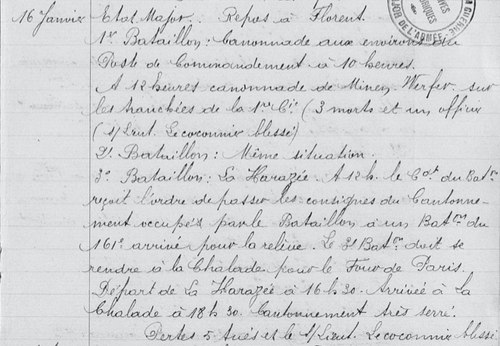 16 Janvier Etat Major. Repos à Florent.
1er Bataillon : Canonnade aux environs du
Poste de Commandement à 10 heures.
A 12 heures canonnade de Minen Werfer sur
les tranchées de la 1re Cie (3 morts et un officier
(s/Lieut. Lecocounier blessé)
2e Bataillon : Même situation.
3e Bataillon : La Harazée. A 12h. le Cdt du Batn
reçoit l'ordre de passer les consignes du Cantonne-
ment occupés par le Bataillon à un Baton du
161e arrivé pour la relève. Le 3e Baton doit se
rendre à la Chalade pour le Four de Paris.
Départ de La Harazée à 16h30. Arrivée à la
Chalade à 18h30. Cantonnement très serré.
Pertes 5 tués et le s/Lieut. Lecocounier blessé